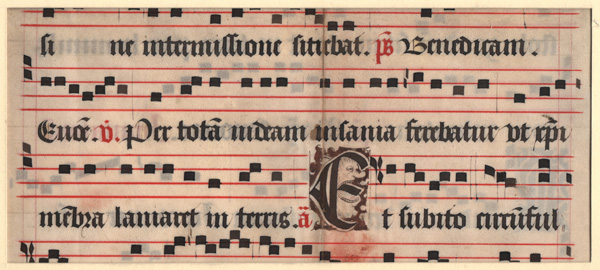 si ne intermissione sitiebat. p̄s Benedicam.
Euoe. v̄. Per totā iudeam insania ferebatur vt xp̄i
mēbra laniaret in terris. ā Et subito circūful